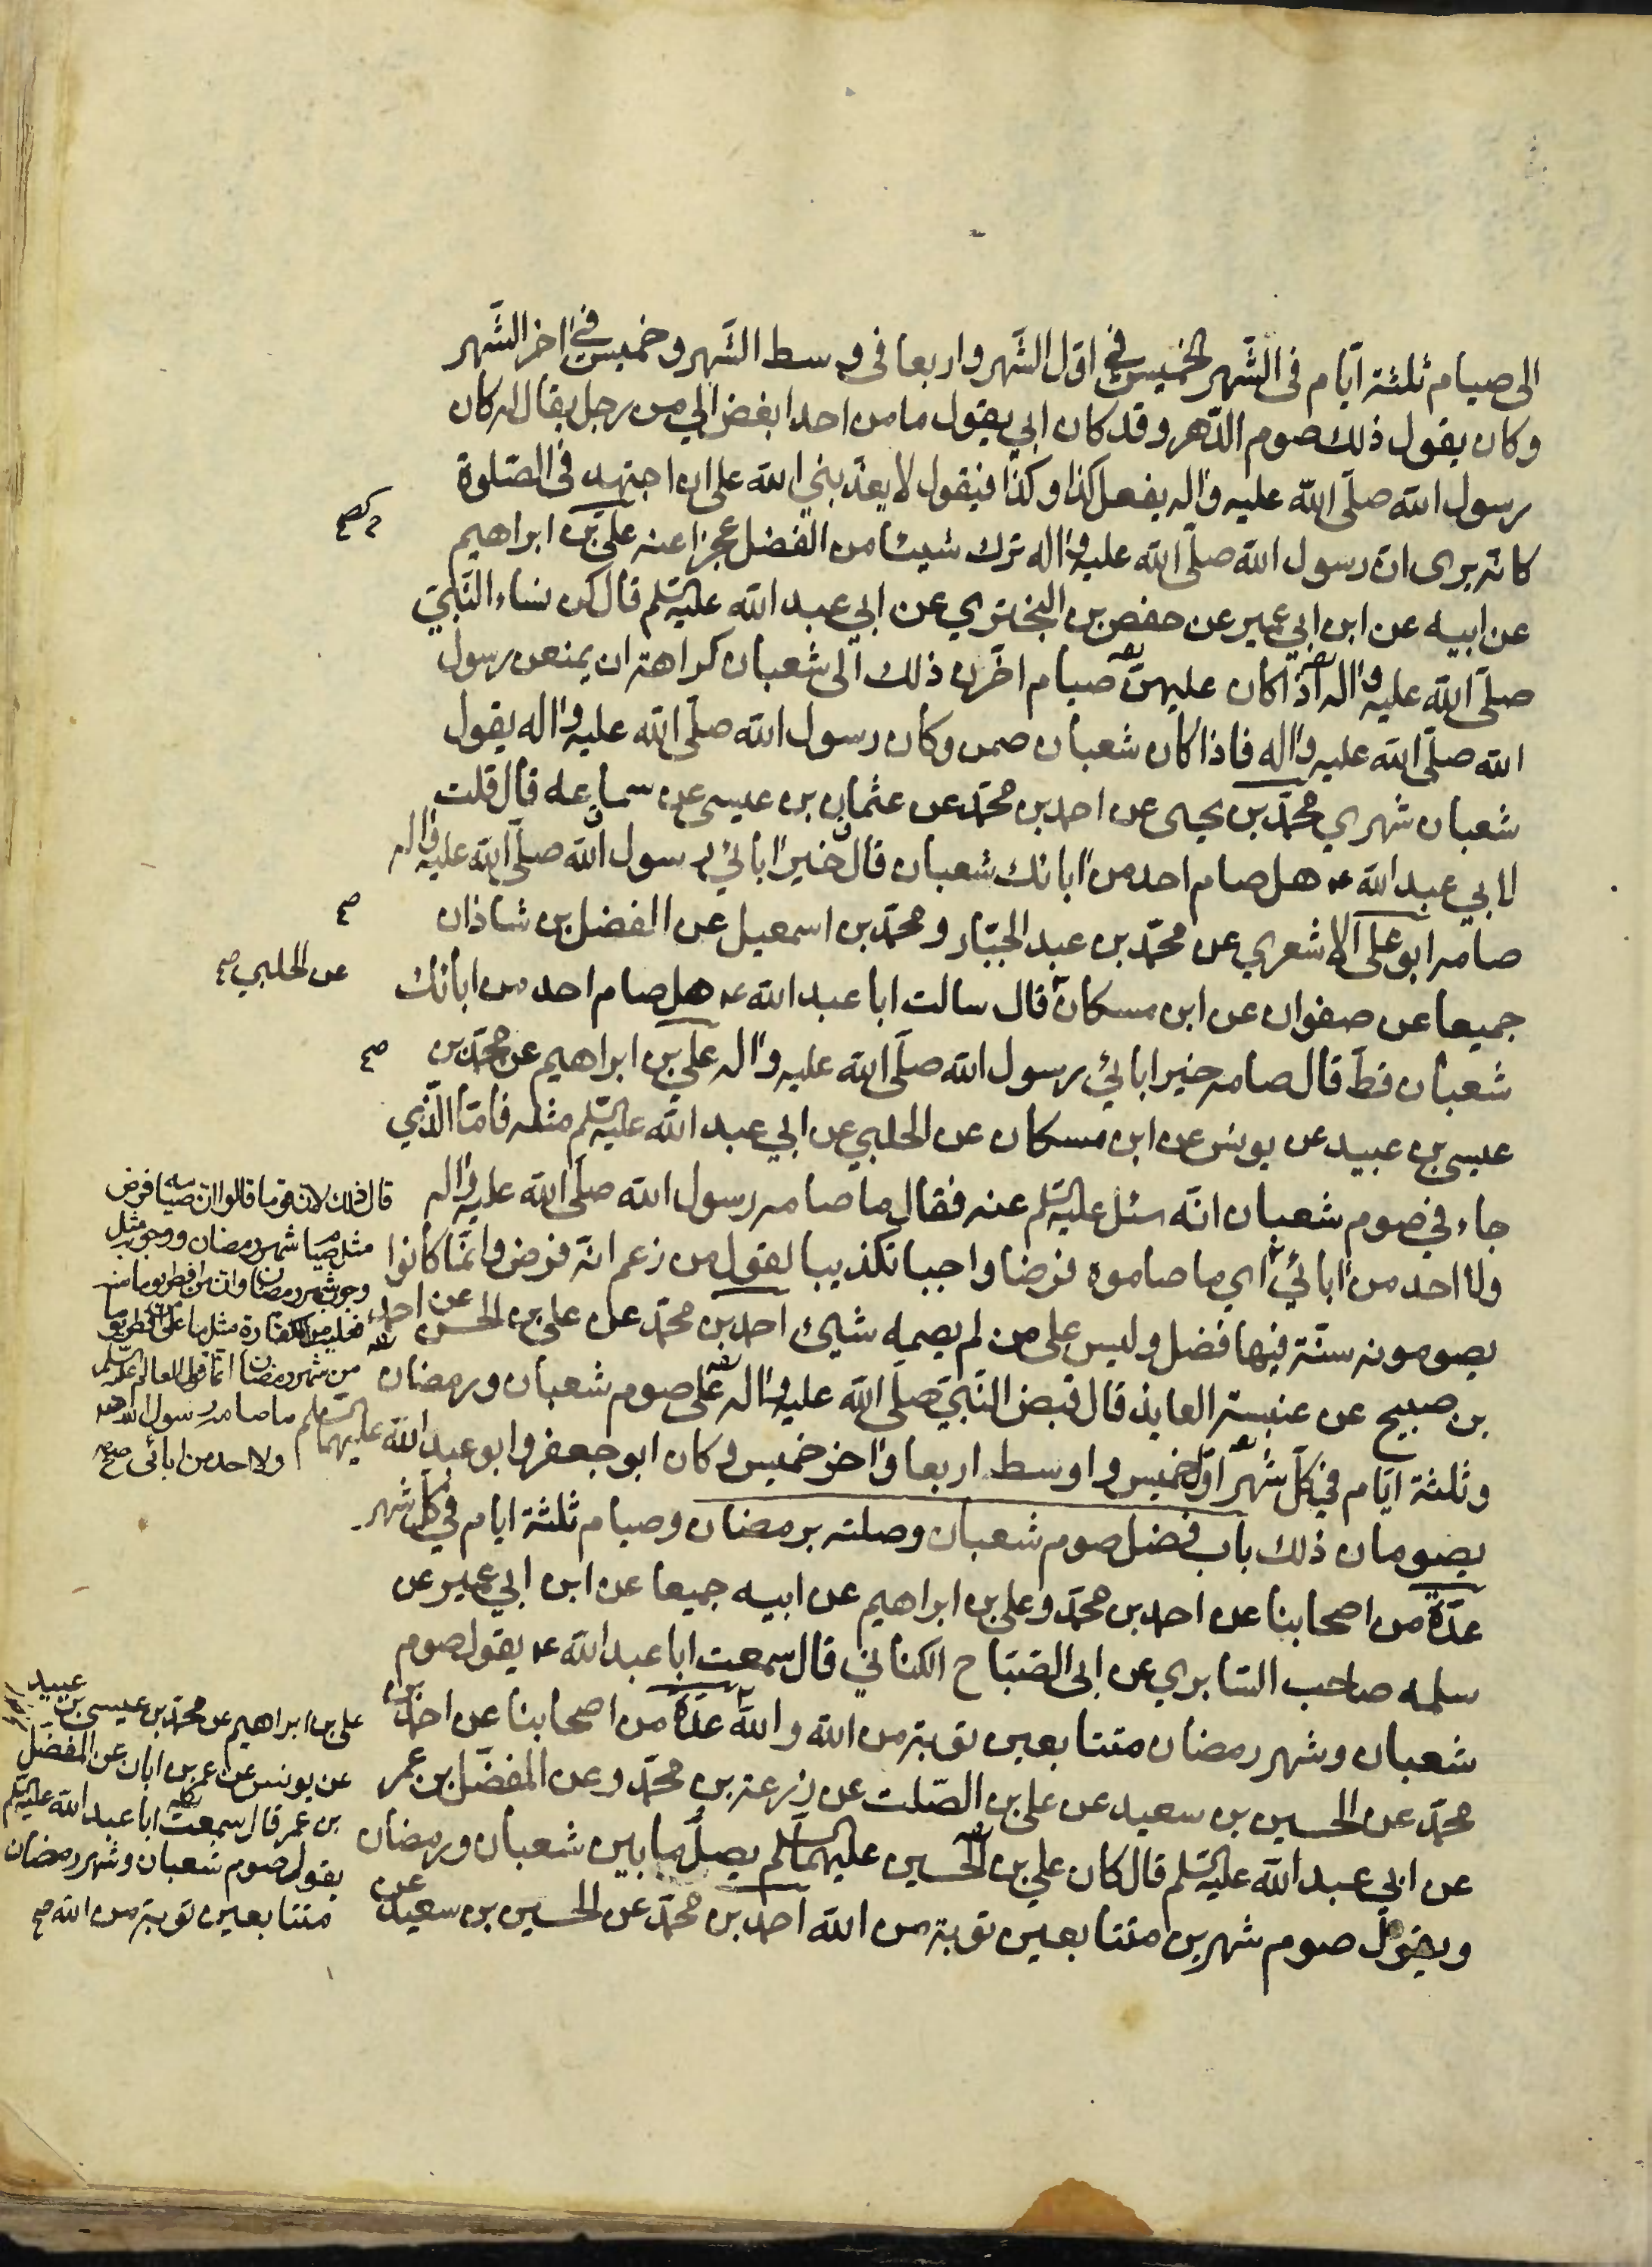 الى صيام ثلثة ايّام فى الشّهر الخميس في اوّل الشّهر واربعا فى وسط الشّهر وخميس في اخر الشّهر
وكان يقول ذلك صوم الدّهر وقد كان ابي يقول ما من احد ابغض الي من رجل يقال له كان
رسول الله صلّى الله عليه وآله يفعل كذا وكذا فيقول لا يعذّبني الله على ان اجتهد فى الصّلوة
كانّه يرى ان رسول الله صلّى الله عليه وآله ترك شيئا من الفضل عجزا عنه علىّ بن ابراهيم
عن ابيه عن ابن ابي عمير عن حفص بن البختري عن ابي عبد الله عليه السّلم قال كن نساء النّبيّ
صلّى الله عليه وآله اذا كان عليهنّ صيام اخّرن ذلك الى شعبان كراهة ان يمنعن رسول
الله صلّى الله عليه وآله فاذا كان شعبان صمن وكان رسول الله صلّى الله عليه وآله يقول
شعبان شهري محمّد بن يحيى عن احمد بن محمّد عن عثمان بن عيسى عن سماعه قال قلت
لابي عبد الله ع هل صام احد من آبائك شعبان قال خير آبائي رسول الله صلّى الله عليه وآله
صامه ابو على الاشعري عن محمّد بن عبد الجبّار ومحمّد بن اسمعيل عن الفضل بن شاذان
جميعا عن صفوان عن ابن مسكان قال سالت ابا عبد الله ع هل صام احد من ابائك
عن الحلبي صح
شعبان قطّ قال صامه خير ابائي رسول الله صلّى الله عليه وآله علي بن ابراهيم عن محمّد بن
عيسى بن عبيد عن يونس عن ابن مسكان عن الحلبي عن ابي عبد الله عليه السّلم مثله فامّا الّذي
جاء في صوم شعبان انّه سئل عليه السّلم عنه فقال ما صامه رسول الله صلّى الله عليه وآله
ولا احد من آبائي اي ما صاموه فرضا واجبا تكذيبا لقول من زعم انّه فرض وانّما كانوا
يصومونه سنّة فيها فضل وليس على من لم يصمه شيئ احمد بن محمّد عن علي بن الحسن عن احمد
بن صبيح عن عنبسة العابد قال قبض النّبيّ صلّى الله عليه وآله على صوم شعبان ورمضان
وثلثة ايّام في كلّ شهر اوّل خميس واوسط اربعا وآخر خميس وكان ابو جعفر وابو عبد الله عليهما السّلم
يصومان ذلك باب فضل صوم شعبان وصلته برمضان وصيام ثلثة ايام في كلّ شهر
عدّة من اصحابنا عن احمد بن محمّد وعلي بن ابراهيم عن ابيه جميعا عن ابن ابي عمير عن
سلمه صاحب السّابري عن ابى الصّبّاح الكناني قال سمعت ابا عبد الله ع يقول صوم
شعبان وشهر رمضان متتابعين توبة من الله والله عدّة من اصحابنا عن احمد بن
محمّد عن الحسين بن سعيد عن علي بن الصّلت عن زرعة بن محمّد وعن المفضّل بن عمر
عن ابي عبد الله عليه السّلم قال كان علي بن الحسين عليهما السّلم يصل ما بين شعبان ورمضان
ويقول صوم شهرين متتابعين توبة من الله احمد بن محمّد عن الحسين بن سعيد عن
قال ذلك لان قوما قالوا ان صيامه فرض
مثل صيام شهر رمضان ووجوبه مثل
وجوب شهر رمضان وان من افطر يوما منه
فعليه من الكفارة مثل ما على من افطر يوما
من شهر رمضان انما قول العالم عليه السّلم
ما صامه رسول الله
ولا احد من ابائى صح
على بن ابراهيم عن محمّد بن عيسى بن عبيد
عن يونس عن عمر بن ابان عن المفضّل
بن عمر قال سمعت ابا عبد الله عليه السّلم
يقول صوم شعبان وشهر رمضان
متتابعين توبة من الله صح